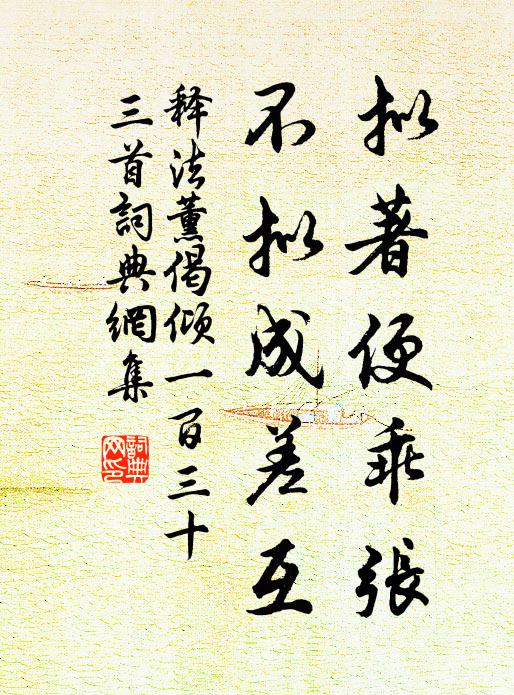 拟著便乖張
不拟成差互
释法薰偈倾一百三十
三首詞典網集
詞典网印